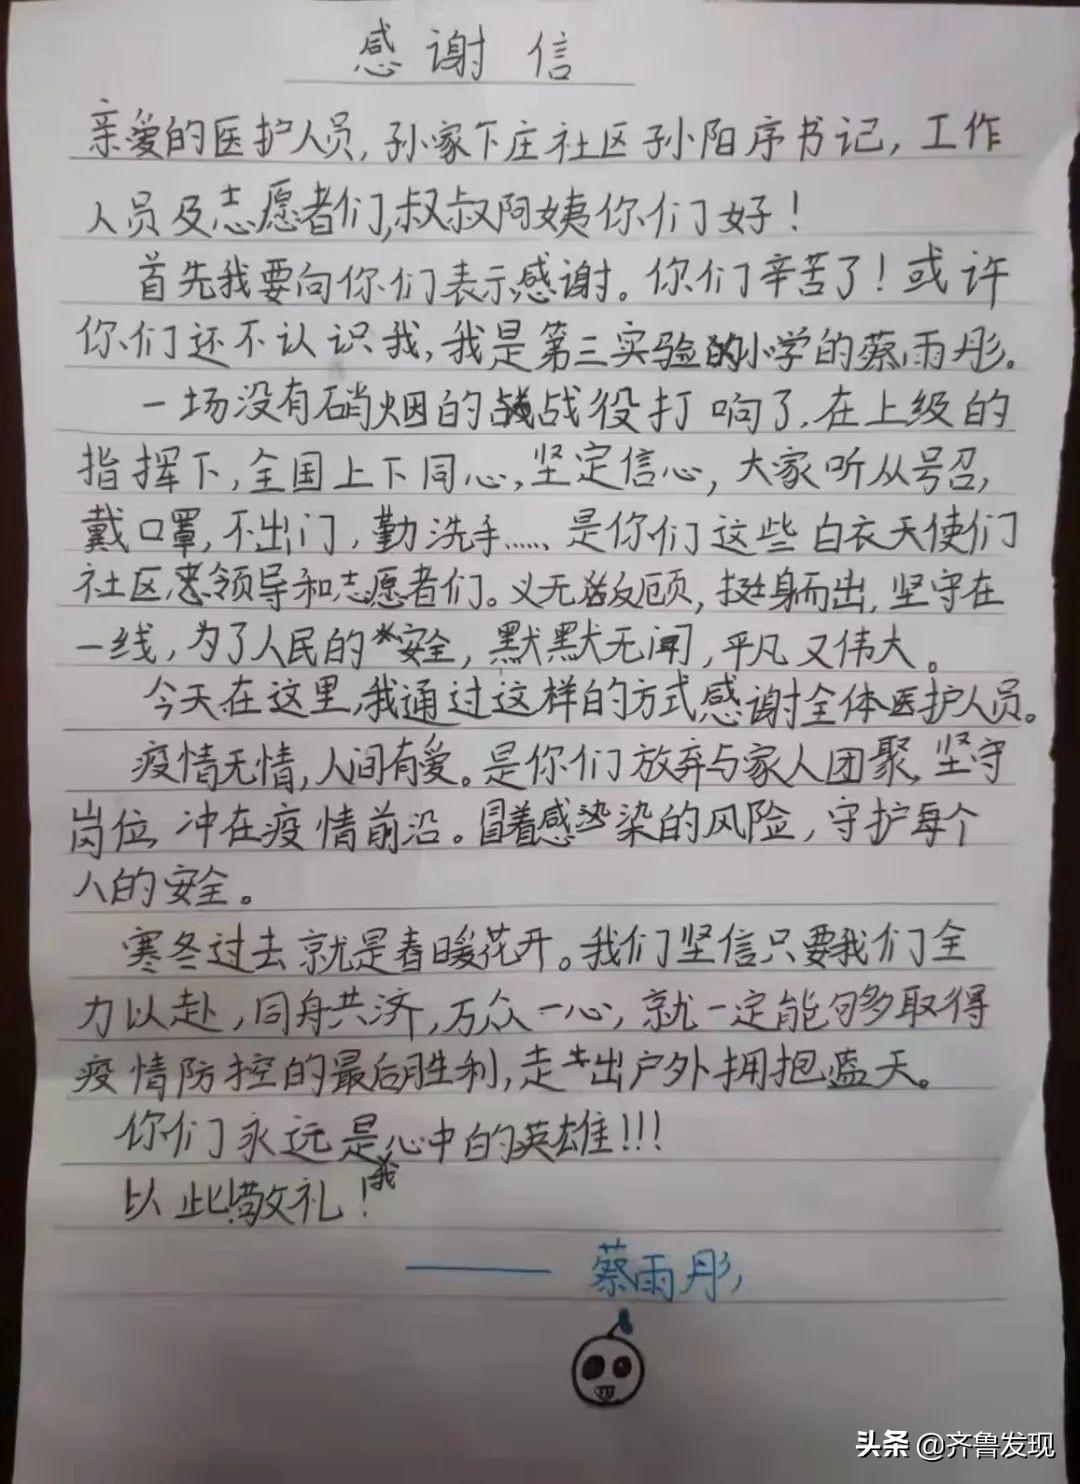 感谢信
亲爱的医护人员,孙家下庄社区孙阳序书记,工作
人员及志愿者们,叔叔阿姨你们好!
首先我要向你们表示感谢。你们辛苦了!或许
你们还不认识我,我是第三实验小学的蔡雨彤。
一场没有硝烟的战役打响了.在上级的
指挥下,全国上下同心,坚定信心,大家听从号召,
戴口罩,不出门,勤洗手……是你们这些白衣天使们
社区领导和志愿者们。义无反顾,挺身而出,坚守在
一线,为了人民的安全,默默无闻,平凡又伟大。
今天在这里,我通过这样的方式感谢全体医护人员。
疫情无情,人间有爱。是你们放弃与家人团聚,坚守
岗位 冲在疫情前沿。冒着感染的风险,守护每个
人的安全。
寒冬过去就是春暖花开。我们坚信只要我们全
力以赴,同舟共济,万众一心,就一定能够取得
疫情防控的最后胜利,走出户外拥抱蓝天。
你们永远是我心中的英雄!!!
以此敬礼!
——蔡雨彤
头条 @齐鲁发现